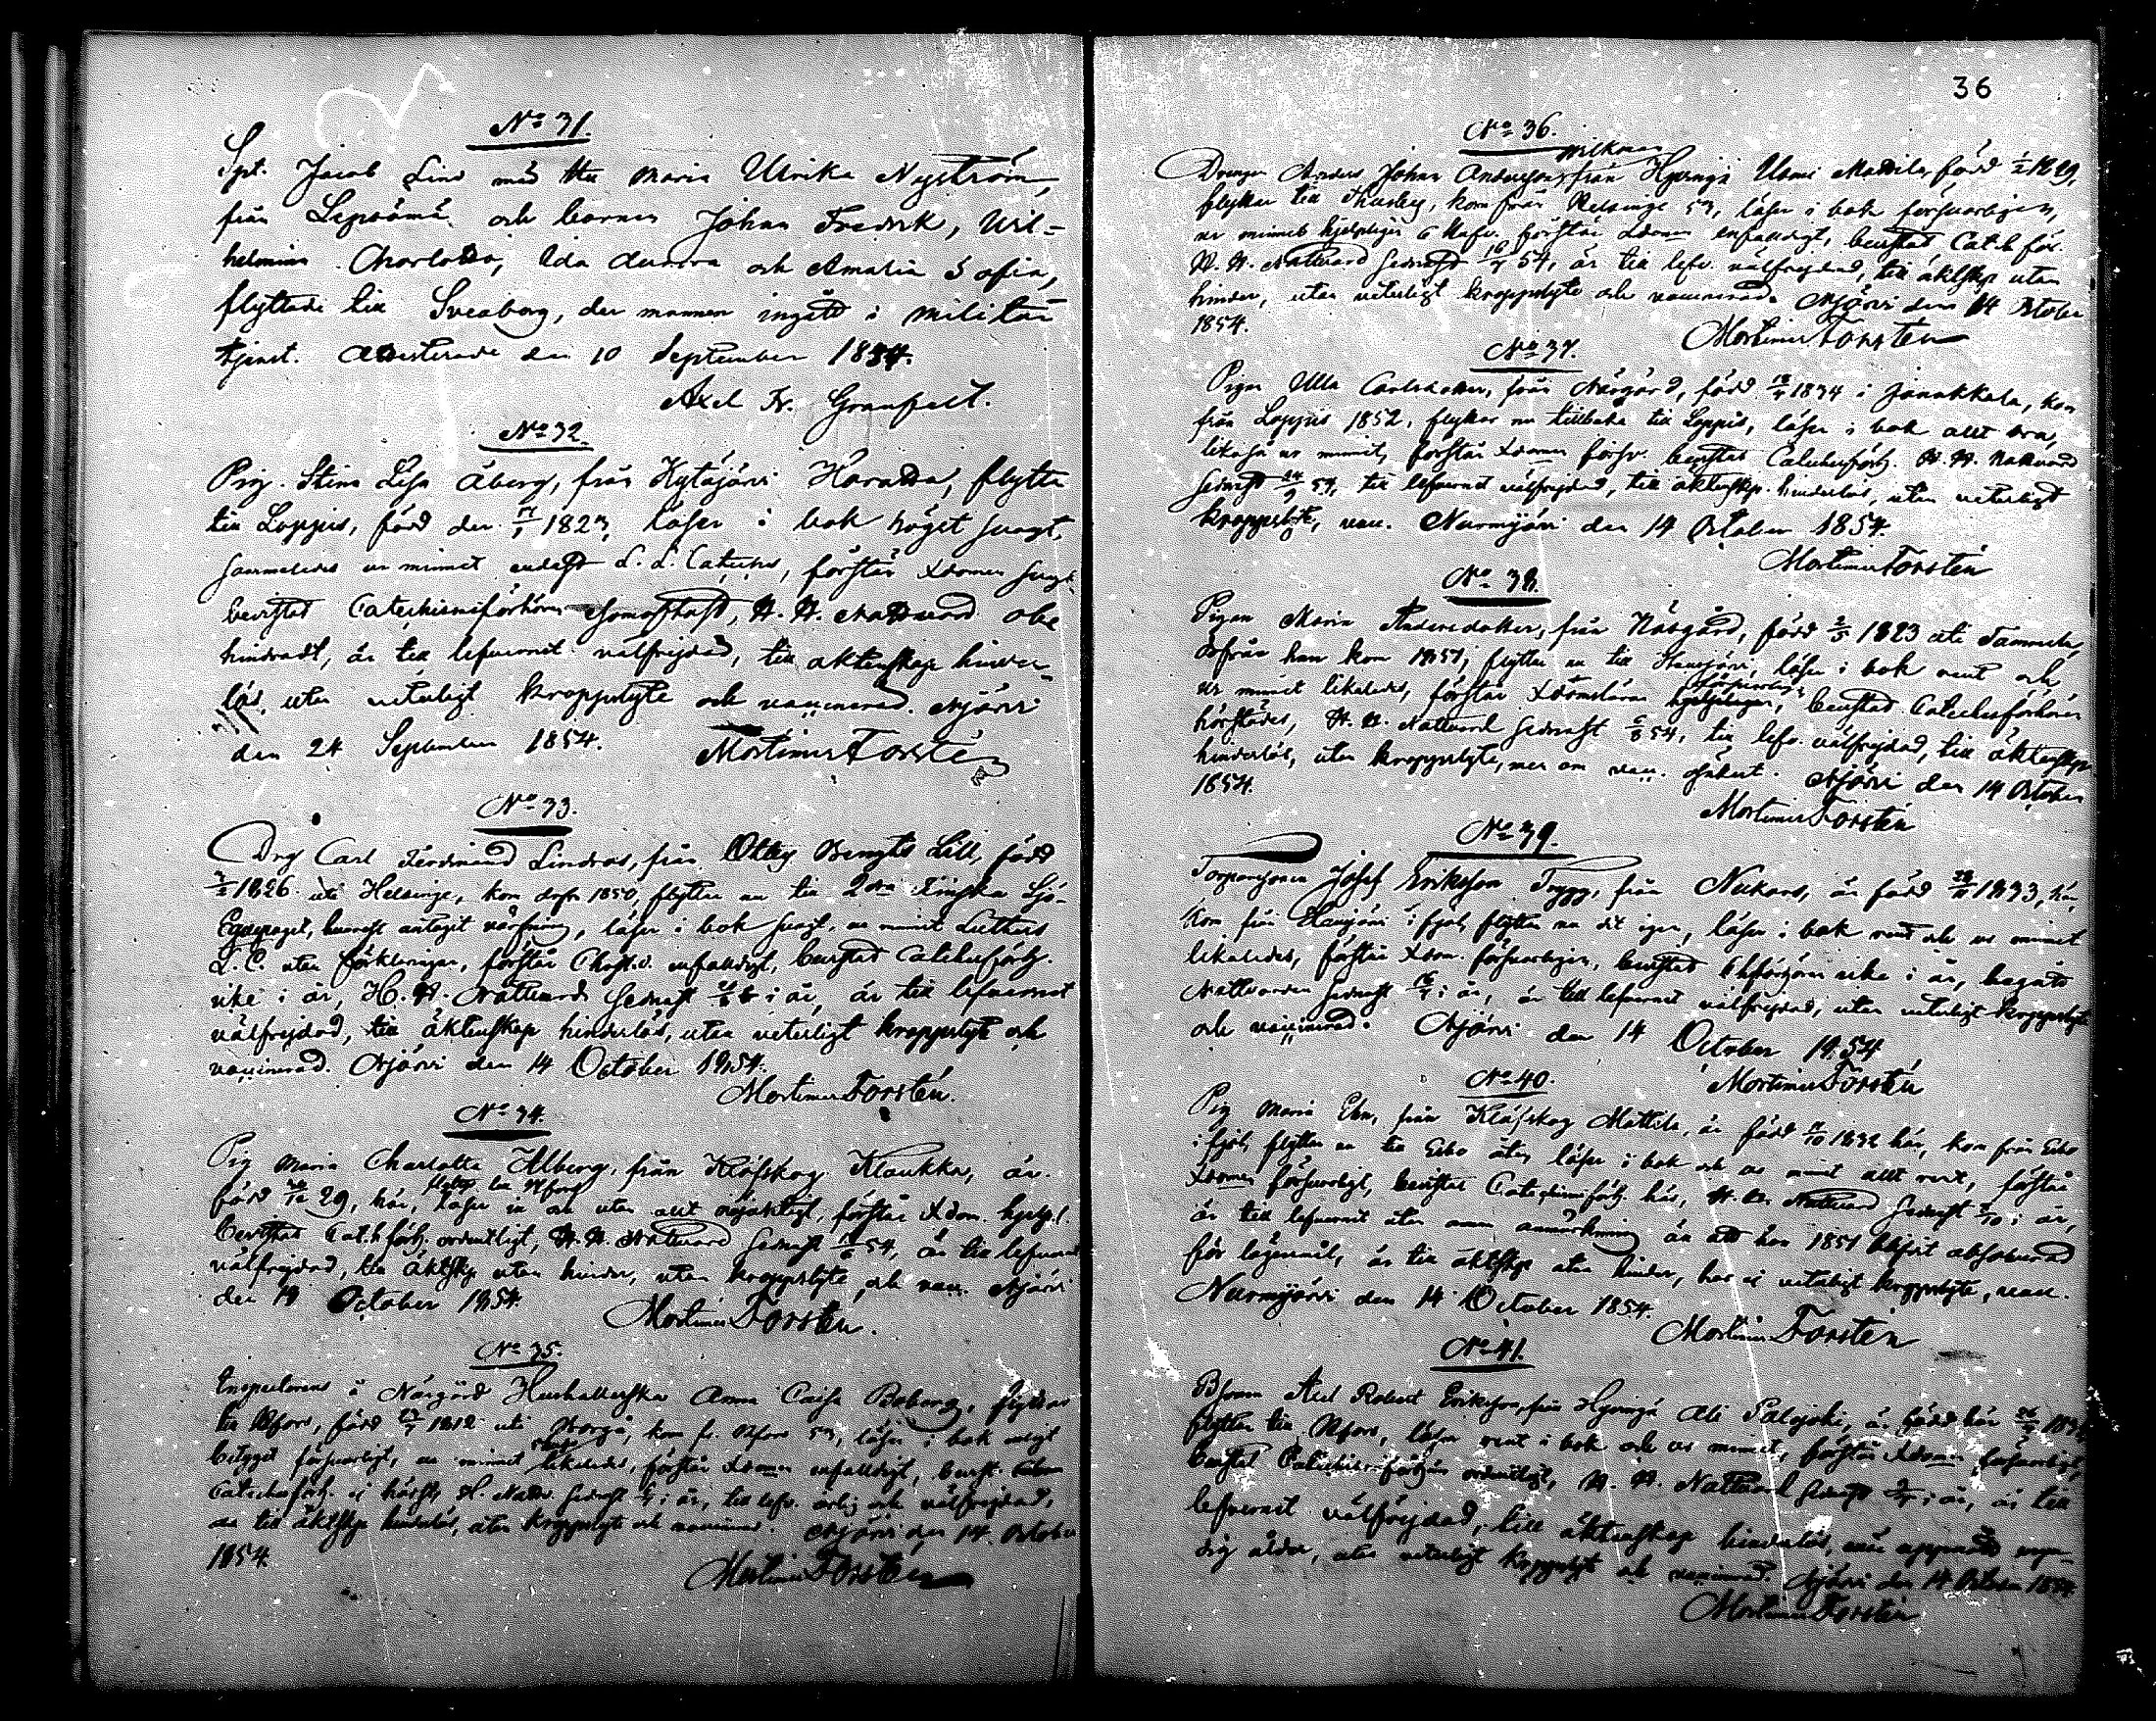 No 31.
Spt. Jacob Lind med Hu Maria Ulrika Nyström,
från Lepsämä och barnen Johan Fredrik, Wil=
helmina Charlotta, Ida Aurora och Amalia Sofia,
flyttade till Sveaborg, der mannen ingått i militär
tjenst. Attesterade den 10 September 1854.
Axel Fr. Granfelt.
No 32.
Pig. Stina Lisa Åberg, från Kytäjärvi, flytta
till Loppis, född den 1823, läser i bok högst svagt,
sammaledes ur minnet endast L. L. Cateches, förstår Xdomen svagt
bevistat Catechismiförhören, H. H. Nattvard obe
hindradt, är till lefvernet välfrejdad, till äktenskap hinder-
lös, utan veterligt kroppslyte och vaccinerad. Njärvi
den 24 September 1854. Mortimer Forstén
No 33.
Drg Carl Ferdinand Lindroos, från Ottby Bengts Lill, född
1826 uti Helsinge, kom derfr. 1850, flyttar nu till 2dra Finska Sjö-
Equipaget, hvarest antagit värfning, läser i bok svagt, ur minnet Luthers
L. C. utan förklaringen, förstår Chrst.d. enfaldigt, bevistat Catechesförh.
icke i år, H. H. Nattvard senast i år, är till lefvernet
välfrejdad, till äktenskap hinderlös, utan veterligt kroppslyte och
vaccinerad. Njärvi den 14 October 1854.
Mortimer Forstén.
No 34.
Pig Maria Charlotta Ahlberg, från Klöfskog Klaukka, är
född 29, här, flyttar till Hfors, läser in och utan allt nöjaktigt, förstår Xdom. hjelpl.
bevistat Cat.förh. ordentligt, H. H. Nattvard senast 54, är till lefvernet
välfrejdad, till äktskp utan hinder, utan kroppslyte och vacc. Njärvi
den 14 October 1854.
Mortimer Forstén.
No 35.
Inspectorens å Nääsgård Hushållerska Anna Caisa Boberg, flyttar
till Hfors, född 1812 uti Borgå, kom fr. Hfors 53, läser i bok
betyget försvarligt, ur minnet likaledes, förstår Xdomen enfaldigt, bevist.
Catechesförh. ej härst, H. Nattv. senast i år, till lefv. ärlig och välfrejdad,
till äktskp hinderlös, utan kroppslyte och vaccinerad. Njärvi den 14 October
1854.
Mortimer Forstén
36
No 36.
Wilkman
Drengen Anders Johan Andersson, från Hyvinge Usmi Mattila, född 1829,
flyttar till Thusby, kom från Helsinge 53, läser i bok försvarligen,
ur minnet hjelpligen, förstår Xdomen enfaldigt, bevistat Cat.förh.
H. H. Nattvard senast 54, är till lefv. välfrejdad, till äktskp utan
hinder, utan veterligt kroppslyte och vaccinerad. Njärvi den 14 October
1854.
Mortimer Forstén
No 37.
Pigan Ulla Carlsdotter, från Nääsgård, född 1834 i Janakkala, kom
från Loppis 1852, flyttar nu tillbaka till Loppis, läser i bok allt bra,
likaså ur minnet, förstår Xdomen försv. bevistat Catechesförh. H. H. Nattvard
senast 54, till lefvernet välfrejdad, till äktenskp. hinderlös, utan veterligt
kroppslyte, vacc. Nurmijärvi den 14 October 1854.
Mortimer Forstén
No 38.
Pigan Maria Andersdotter, från Nääsgård, född 1823 uti Tammela,
dfrån hon kom 1851, flyttar nu till Hausjärvi, läser i bok rent och
ur minnet likaledes, förstår Xdomsläran försvarligen, bevistat Catechesförhören
härstädes, H. H. Nattvard senast 54, till lefv. välfrejdad, till äktenskap
hinderlös, utan kroppslyte, men om vacc. osäkert. Njärvi den 14 October
1854.
Mortimer Forstén
No 39.
Torparsonen Josef Eriksson Trygg, från Nukari, är född 1833, här,
kom från Hausjärvi i fjol, flyttar nu dit igen, läser i bok rent och ur minnet
likaledes, förstår Xdom. försvarligen, bevistat förhören icke i år, begått
Nattvarden senast i år, är till lefvernet välfrejdad, utan veterligt kroppslyte
och vaccinerad. Njärvi den 14 October 1854
Mortimer Forstén
No 40.
Pig Maria Ehn, från Klöfskog Mattila, är född 1832 här, kom från Esbo
i fjol, flyttar nu till Esbo åter, läser i bok och ur minnet allt rent, förstår
Xdomen försvarligt, bevistat Catechismiförh. här, H. H. Nattvard senast i år,
är till lefvernet utan annan anmärkning än att hon 1851 blifvit absolverad
för lägersmål, är till äktskp utan hinder, har ej veterligt kroppslyte, vacc.
Nurmijärvi den 14 October 1854.
Mortimer Forstén
No 41.
Bsonen Axel Robert Eriksson, från Hyvinge Ali Palojoki, är född här
flyttar till Hfors, läser rent i bok och ur minnet, förstår Xdomen försvarligt,
bevistat Catechesförhören ordentligt, H. H. Nattvard senast i år, är till
lefvernet välfrejdad, till äktenskap hinderlös, när uppnått
dig ålder, utan veterligt kroppslyte och vaccinerad. Njärvi den 14 October 1854.
Mortimer Forstén